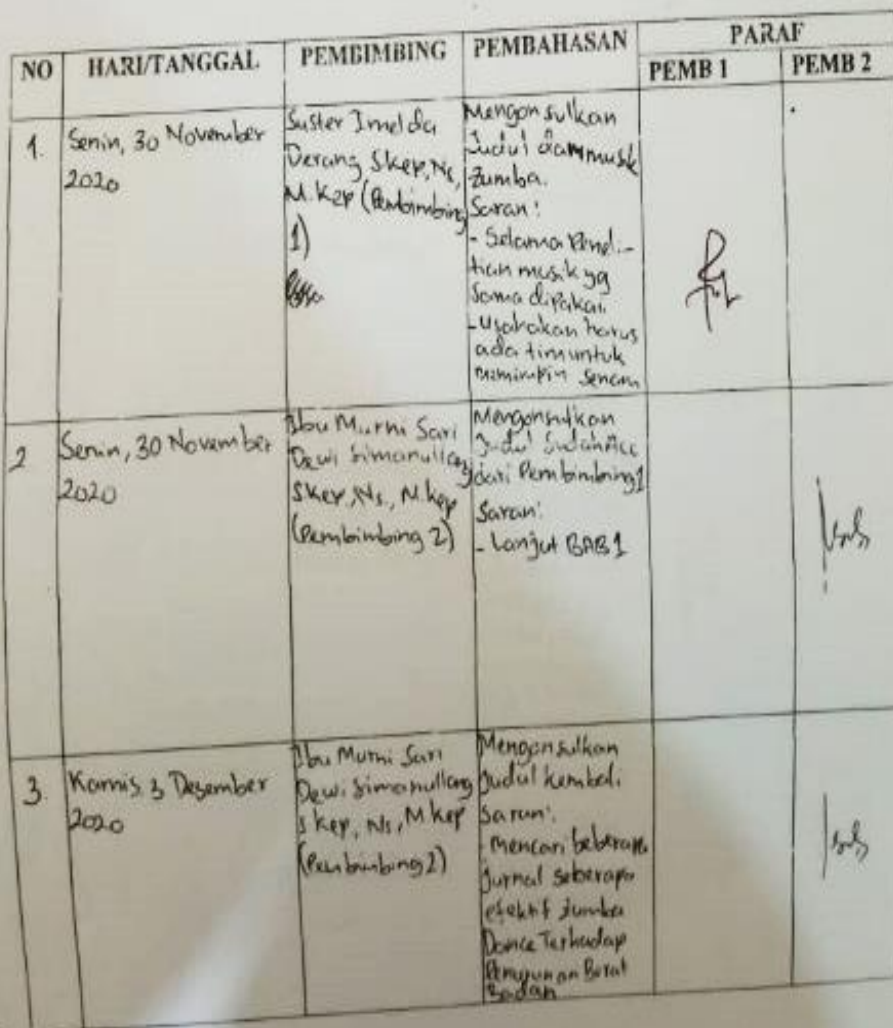 NO HARI/TANGGAL PEMBIMBING PEMBAHASAN PARAF
PEMB 1 PEMB 2
1. Senin, 30 November
2020
Suster Imelda
Derang Skep, Ns,
M.Kep (Pembimbing
1)
Mengonsulkan
Judul dan musik
Zumba.
Saran:
- Selama Peneli-
tian musik yg
Sama dipakai.
- Usahakan harus
ada tim untuk
memimpin Senam
2 Senin, 30 November
2020
Ibu Murni Sari
Dewi Simanullang
SKep, Ns, M.kep
(Pembimbing 2)
Mengonsulkan
Judul Sudah Acc
dari Pembimbing 1
Saran:
- Lanjut BAB 1
3. Kamis 3 Desember
2020
Ibu Murni Sari
Dewi Simanullang
Skep, Ns, M kep
(Pembimbing 2)
Mengonsulkan
Judul kembali
Saran:
- Mencari beberapa
Jurnal seberapa
efektif Zumba
Dance Terhadap
Penurunan Berat
Badan